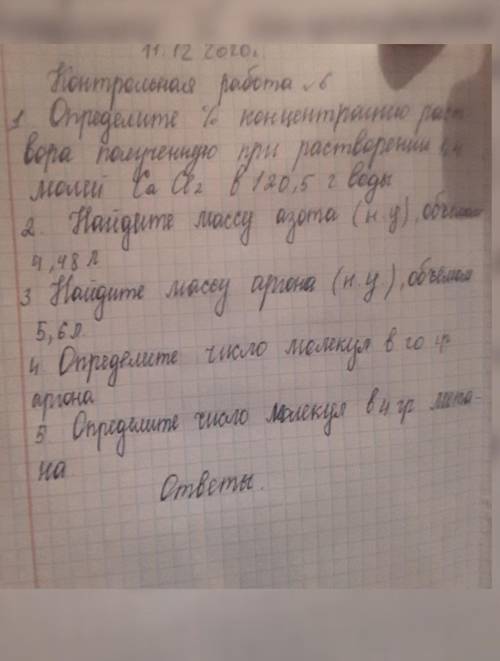 11.12 2020г.
Контрольная работа №6
1. Определите % концентрацию раст
вора полученную при растворении
молей CaCl2 в 120,5 г воды
2. Найдите массу азота (н.у), объёмом
4,48 л
3 Найдите массу аргона (н.у.), объёмом
5,6 л.
4 Определите число молекул в 20 гр
аргона
5 Определите число молекул в 4 гр мета-
на
Ответы.